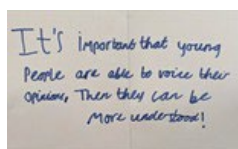 It's important that young
People are able to voice their
opinions, Then they can be
More understood!